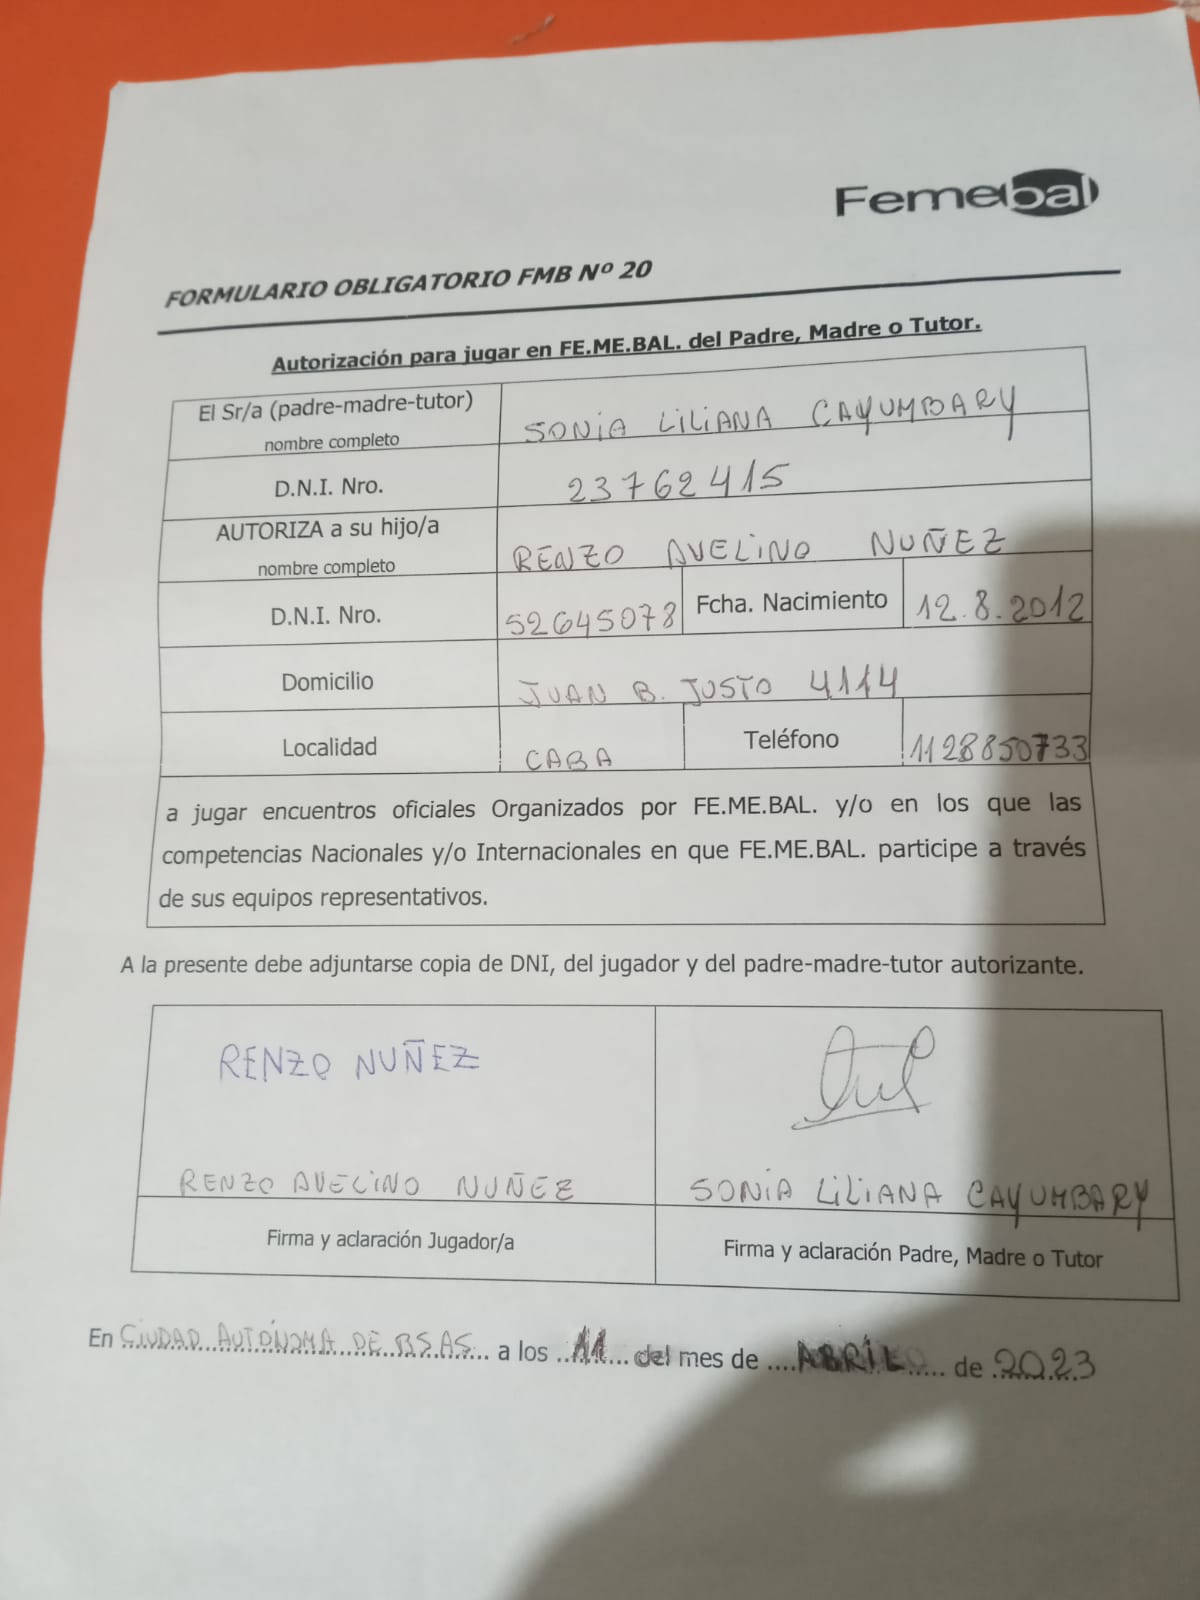 Femebal
FORMULARIO OBLIGATORIO FMB Nº 20
Autorización para jugar en FE.ME.BAL. del Padre, Madre o Tutor.
El Sr/a (padre-madre-tutor)
nombre completo
SONIA LILIANA CAYUMBARY
D.N.I. Nro.
23762415
AUTORIZA a su hijo/a
nombre completo
RENZO AVELINO NUÑEZ
D.N.I. Nro.
52645078
Fcha. Nacimiento
12.8.2012
Domicilio
JUAN B. JUSTO 4114
Localidad
CABA
Teléfono
1128850733
a jugar encuentros oficiales Organizados por FE.ME.BAL. y/o en los que las
competencias Nacionales y/o Internacionales en que FE.ME.BAL. participe a través
de sus equipos representativos.
A la presente debe adjuntarse copia de DNI, del jugador y del padre-madre-tutor autorizante.
RENZO NUÑEZ
RENZO AVELINO NUÑEZ
SONIA LILIANA CAYUMBARY
Firma y aclaración Jugador/a
Firma y aclaración Padre, Madre o Tutor
En CIUDAD AUTÓNOMA DE BS AS a los 11 del mes de ABRIL de 2023